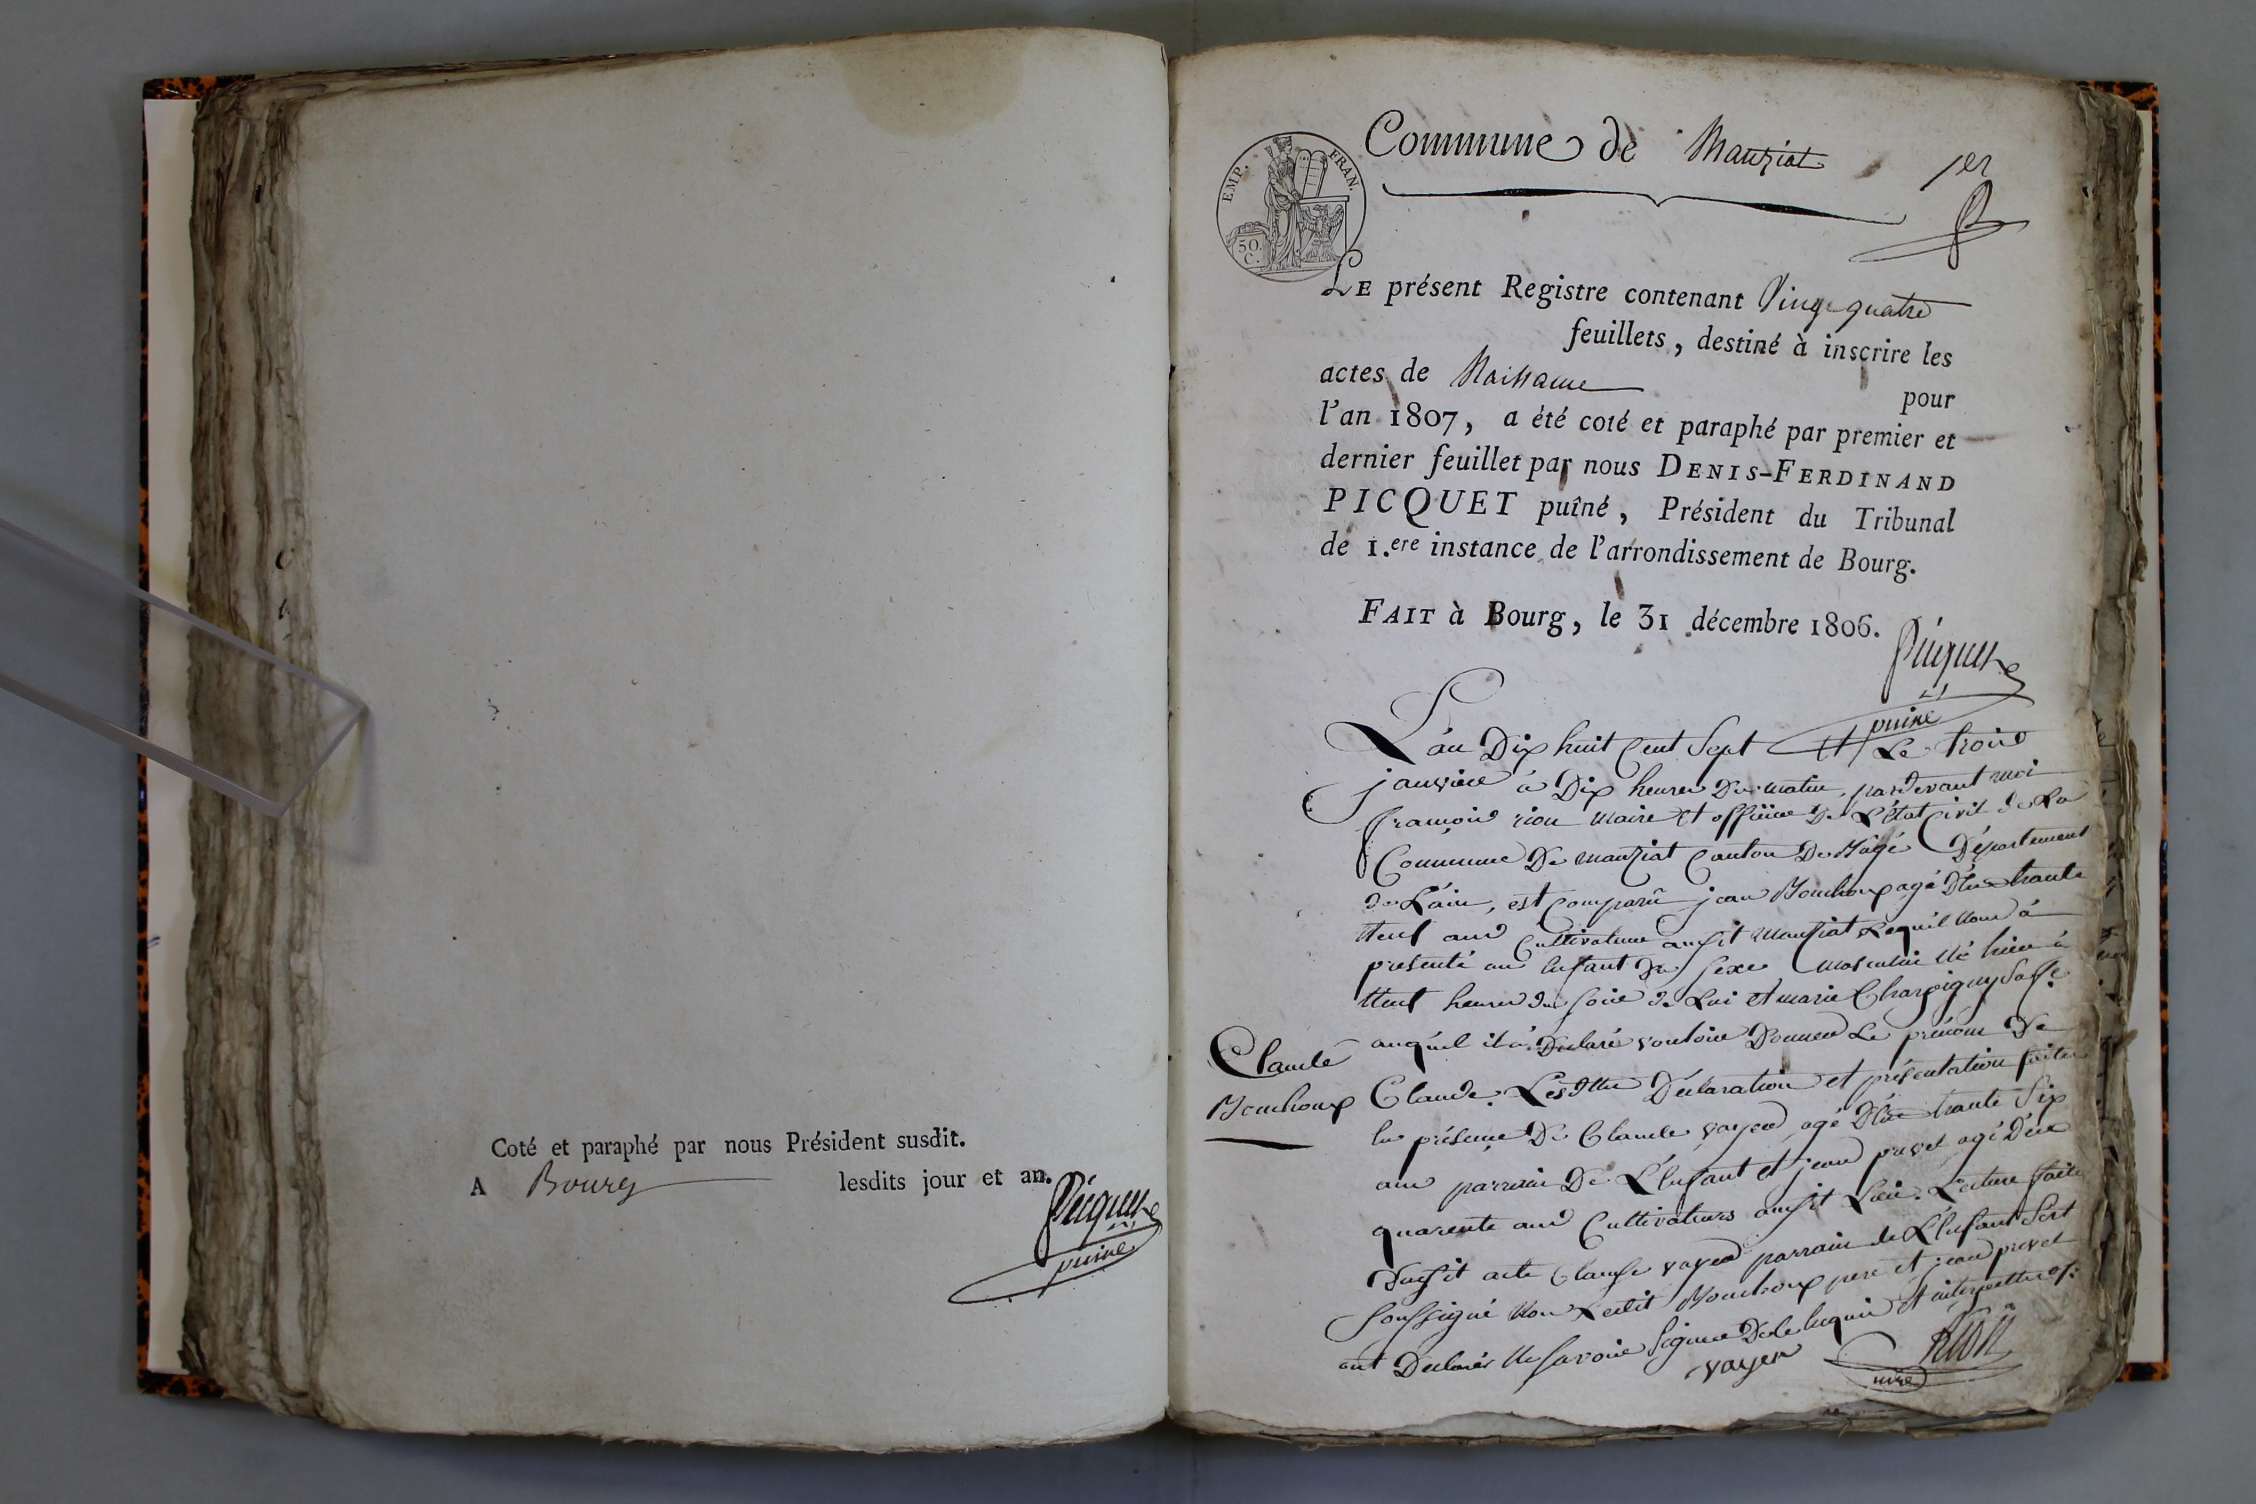 Coté et paraphé par nous Président susdit.
A Bourg lesdits jour et an.
Picquet
puiné
Commune de Manziat
1er
EMP. FRAN.
50.
C.
LE présent Registre contenant Vingt quatre
feuillets, destiné à inscrire les
actes de Naissance
pour
l'an 1807, a été coté et paraphé par premier et
dernier feuillet par nous DENIS-FERDINAND
PICQUET puîné, Président du Tribunal
de 1.ere instance de l'arrondissement de Bourg.
FAIT à Bourg, le 31 décembre 1806.
Picquet
puiné
L'an Dix huit Cent Sept Et Le trois
janvier à Dix heures Du matin, pardevant moi
françois rion Maire et officier De L'état Civil de La
Commune De manziat Canton De Bagé Département
de L'ain, est Comparû jean Bouchoux agé D'en trante
Neuf ans Cultivateur audit Manziat Lequél Nous à
présenté un Enfant du Sexe Masculin Né hier à
Neuf heures du soir de Lui et marie Charpigny Sa f.e
auquél il à Déclaré vouloir Donner Le prénom De
Claude
Bouchoux
Claude. Lesdttes Déclaration et présentation faites
En présence De Claude vayer agé D'en trante Six
ans parrain De L'Enfant et jean privet agé D'en
quarente ans Cultivateurs audit Lieu. Lecture faite
Dudit acte Claude vayer parrain de L'Enfant S'est
Soussigné Non Ledit Bouchoux pere et jean privet
ont Declarés Ne savoir Signer De Ce Enquis Et interpellés
vayer
Rion
mre